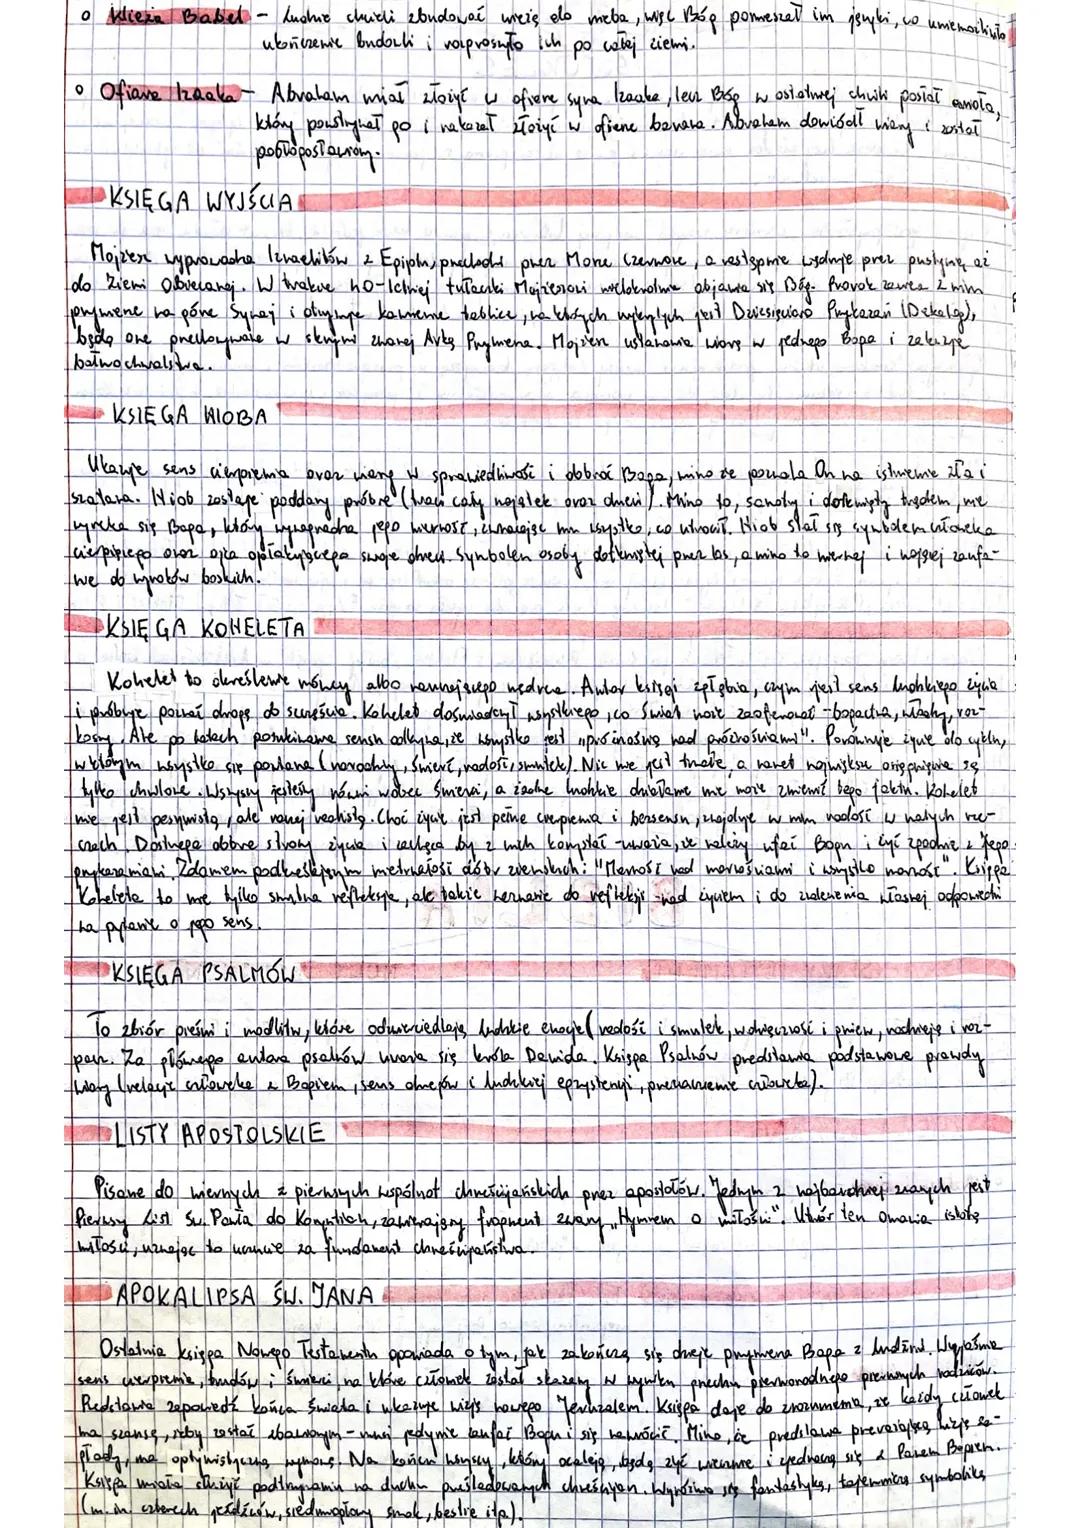 o Wieża Babel - Ludzie chcieli zbudować wieżę do nieba, więc Bóg pomieszał im języki, co uniemożliwiło
ukończenie budowli i rozproszyło ich po całej ziemi.
o Ofiara Izaaka - Abraham miał złożyć w ofierze syna Izaaka, lecz Bóg w ostatniej chwili posłał anioła,
który powstrzymał go i nakazał złożyć w ofierze barana. Abraham dowiódł wiary i został
pobłogosławiony.
KSIĘGA WYJŚCIA
Mojżesz wyprowadza Izraelitów z Egiptu, przechodzi przez Morze Czerwone, a następnie wędruje przez pustynię aż
do Ziemi Obiecanej. W trakcie 40-letniej tułaczki Mojżeszowi wielokrotnie objawia się Bóg. Prorok zawiera z nim
przymierze na górze Synaj i otrzymuje kamienne tablice, na których wyrytych jest Dziesięcioro Przykazań (Dekalog),
będą one przechowywane w skrzyni zwanej Arką Przymierza. Mojżesz ustanawia wiarę w jednego Boga i zakazuje
bałwochwalstwa.
KSIĘGA HIOBA
Ukazuje sens cierpienia oraz wiarę w sprawiedliwość i dobroć Boga, mimo że pozwala On na istnienie zła i
szatana. Hiob zostaje poddany próbie (traci cały majątek oraz dzieci). Mimo to, samotny i dotknięty trądem, nie
wyrzeka się Boga, który wynagradza jego wierność, zwracając mu wszystko, co utracił. Hiob stał się symbolem człowieka
cierpiącego oraz ojca opłakującego swoje dzieci. Symbolem osoby dotkniętej przez los, a mimo to wiernej i mającej zaufa-
nie do wyroków boskich.
KSIĘGA KOHELETA
Kohelet to określenie mówcy albo nauczającego mędrca. Autor księgi zgłębia, czym jest sens ludzkiego życia
i próbuje poznać drogę do szczęścia. Kohelet doświadczył wszystkiego, co świat może zaoferować - bogactwa, władzy, roz-
koszy. Ale po latach poszukiwania sensu odkrywa, że wszystko jest "próżnością nad próżnościami". Porównuje życie do cyklu,
w którym wszystko się powtarza (narodziny, śmierć, radość, smutek). Nic nie jest trwałe, a nawet największe osiągnięcia są
tylko chwilowe. Wszyscy jesteśmy równi wobec śmierci, a żadne ludzkie działanie nie może zmienić tego faktu. Kohelet
nie jest pesymistą, ale raczej realistą. Choć życie jest pełne cierpienia i bezsensu, znajduje w nim radość w małych rze-
czach. Dostrzega dobre strony życia i zachęca by z nich korzystać - uważa, że należy ufać Bogu i żyć zgodnie z Jego
przykazaniami. Zdaniem podkreślającym nietrwałość dóbr ziemskich: "Marność nad marnościami i wszystko marność". Księga
Koheleta to nie tylko smutna refleksja, ale także wezwanie do refleksji nad życiem i do znalezienia własnej odpowiedzi
na pytanie o jego sens.
KSIĘGA PSALMÓW
To zbiór pieśni i modlitw, które odzwierciedlają ludzkie emocje (radość i smutek, wdzięczność i gniew, nadzieję i roz-
pacz. Za głównego autora psalmów uważa się króla Dawida. Księga Psalmów przedstawia podstawowe prawdy
wiary (relacje człowieka z Bogiem, sens dziejów i ludzkiej egzystencji, przeznaczenie człowieka).
LISTY APOSTOLSKIE
Pisane do wiernych z pierwszych wspólnot chrześcijańskich przez apostołów. Jednym z najbardziej znanych jest
Pierwszy List Św. Pawła do Koryntian, zawierający fragment zwany "Hymnem o miłości". Utwór ten omawia istotę
miłości, uznając to uczucie za fundament chrześcijaństwa.
APOKALIPSA ŚW. JANA
Ostatnia księga Nowego Testamentu opowiada o tym, jak zakończą się dzieje przymierza Boga z ludźmi. Wyjaśnia
sens cierpienia, trudów i śmierci, na które człowiek został skazany w wyniku grzechu pierworodnego pierwszych rodziców.
Przedstawia zapowiedź końca świata i ukazuje wizję nowego Jeruzalem. Księga daje do zrozumienia, że każdy człowiek
ma szansę, żeby zostać zbawionym - musi jedynie zaufać Bogu i się nawrócić. Mimo, że przedstawia przerażającą wizję za-
głady, ma optymistyczną wymowę. Na końcu wszyscy, którzy ocaleją, będą żyć wiecznie i zjednoczą się z Panem Bogiem.
Księga miała służyć podtrzymaniu na duchu prześladowanych chrześcijan. Wyróżnia się fantastyką, tajemniczą symboliką
(m.in. czterech jeźdźców, siedmiogłowy smok, bestie itp.).